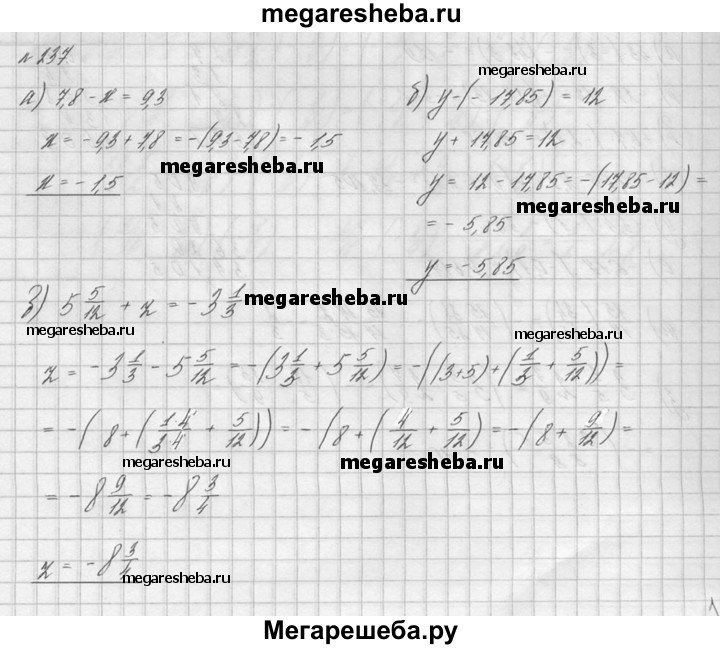 megaresheba.ru
№ 237
а) 7,8 - x = 9,3
x = -9,3 + 7,8 = -(9,3 - 7,8) = -1,5
megaresheba.ru
x = -1,5
megaresheba.ru
б) y - (-17,85) = 12
y + 17,85 = 12
y = 12 - 17,85 = -(17,85 - 12) =
megaresheba.ru
= -5,85
y = -5,85
в) 5 5/12 + z = -3 1/3
megaresheba.ru
megaresheba.ru
megaresheba.ru
z = -3 1/3 - 5 5/12 = -(3 1/3 + 5 5/12) = -((3+5) + (1/3 + 5/12)) =
= -(8 + (1·4/3·4 + 5/12)) = -(8 + (4/12 + 5/12)) = -(8 + 9/12) =
megaresheba.ru
megaresheba.ru
= -8 9/12 = -8 3/4
z = -8 3/4
megaresheba.ru
Мегарешеба.ру